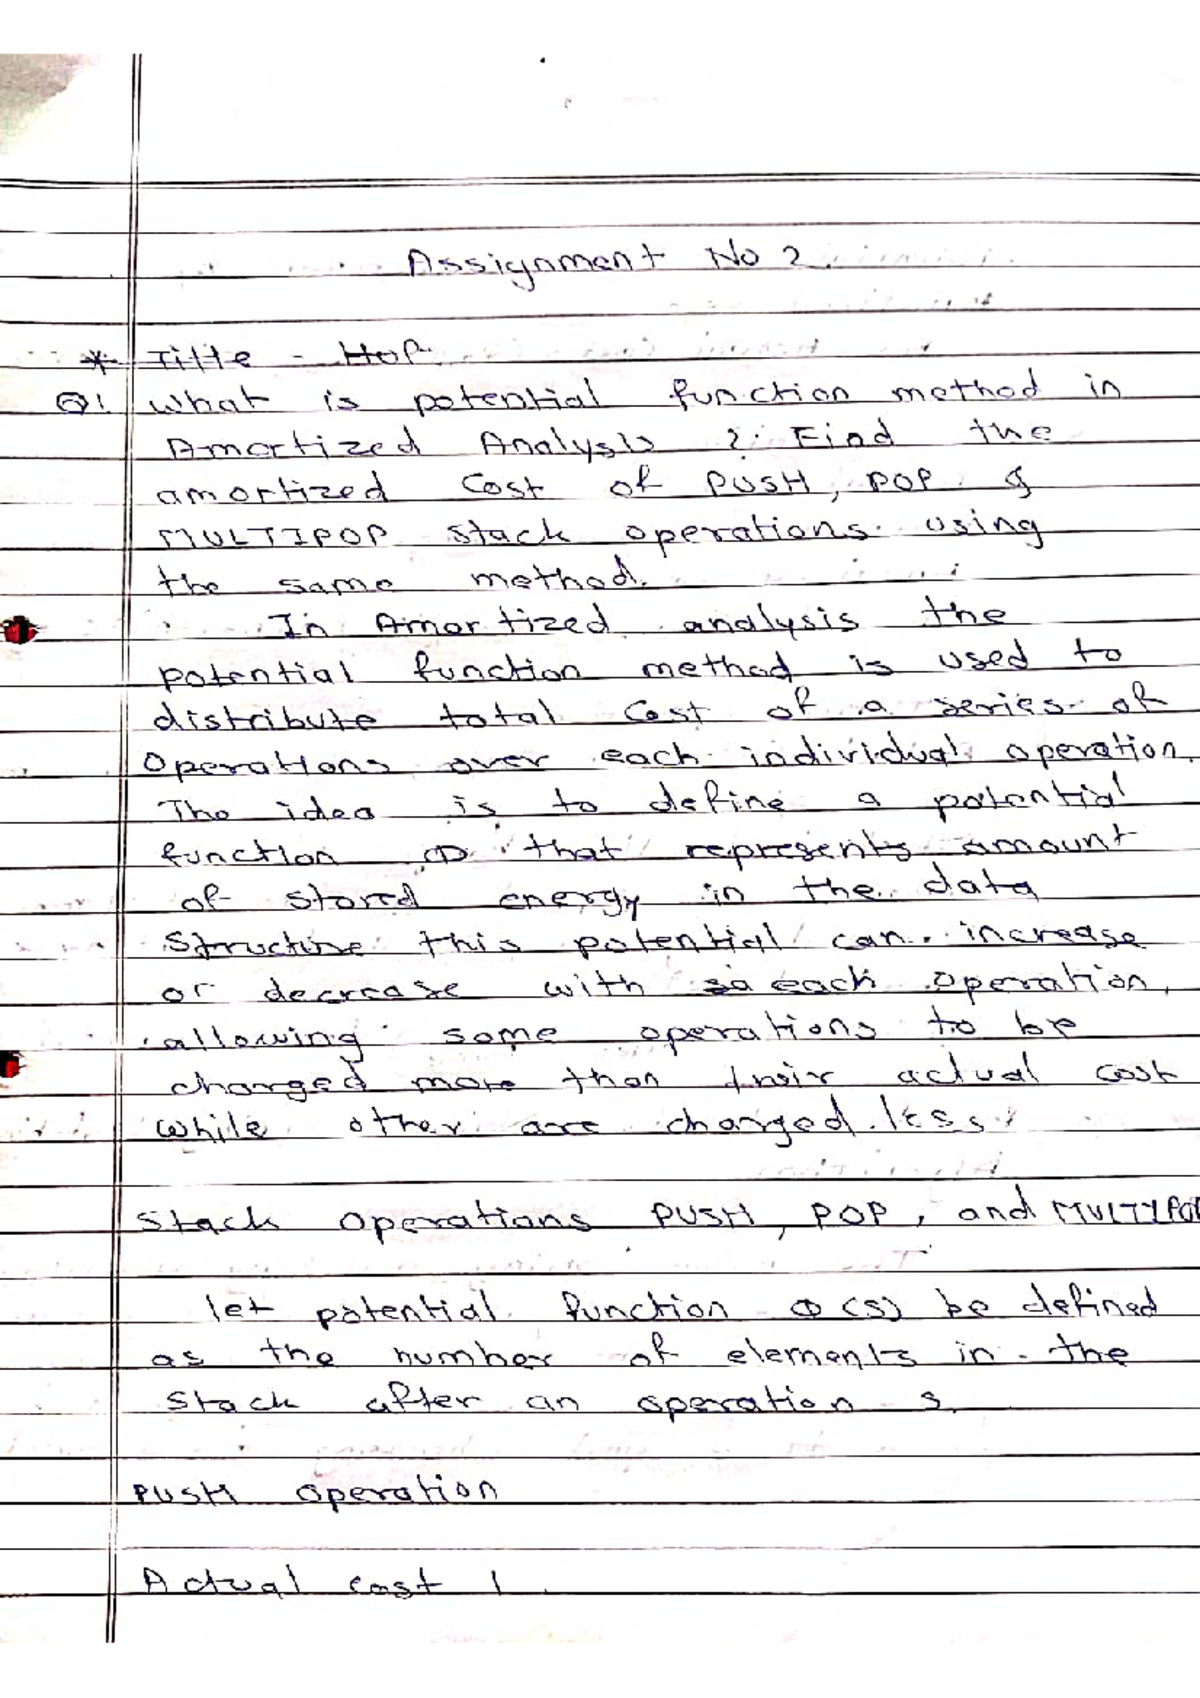 Assignment No 2.
* Title - HOP.
Q1. What is potential function method in
Amortized Analysis ? Find the
amortized cost of PUSH, POP &
MULTIPOP stack operations using
the same method.
In Amortized analysis the
potential function method is used to
distribute total cost of a series of
operations over each individual operation.
The idea is to define a potential
function Φ that represents amount
of stored energy in the data
structure this potential can increase
or decrease with each operation,
allowing some operations to be
charged more than their actual cost
while other are charged less.
Stack operations PUSH, POP, and MULTIPOP
let potential function Φ(S) be defined
as the number of elements in the
stack after an operation s.
PUSH operation
Actual cost 1